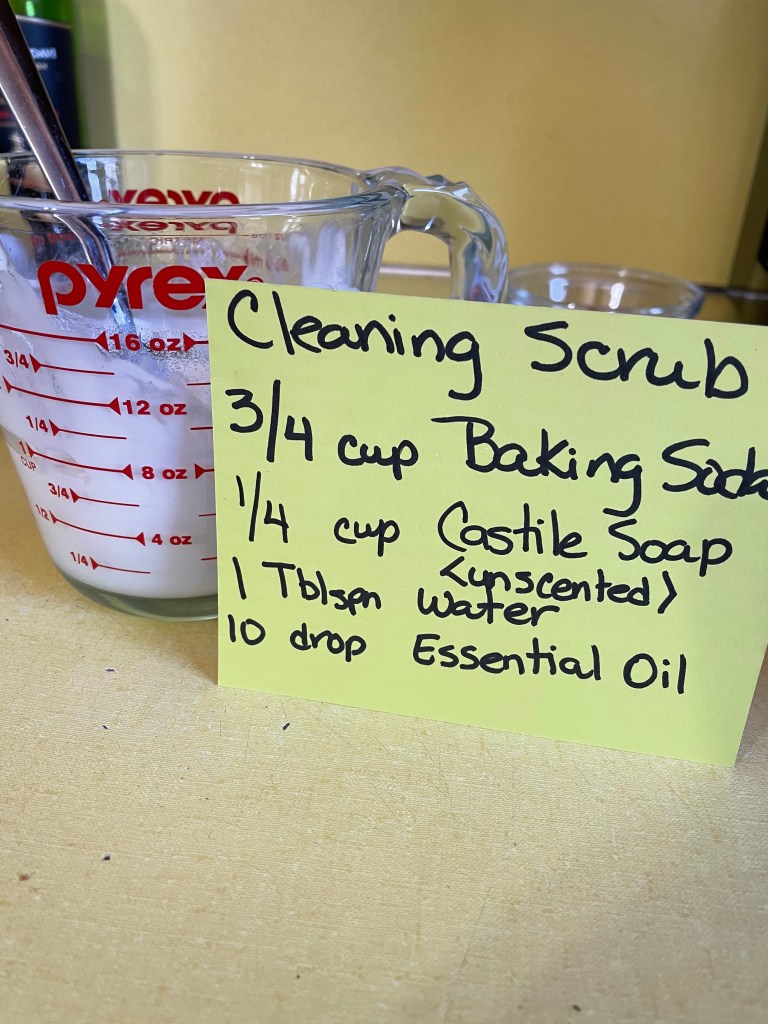 pyrex®
16 oz
3/4
12 oz
1/4
1
CUP
8 oz
3/4
1/2
4 oz
1/4
Cleaning Scrub
3/4 cup Baking Soda
1/4 cup Castile Soap
<unscented>
1 Tblspn Water
10 drop Essential Oil